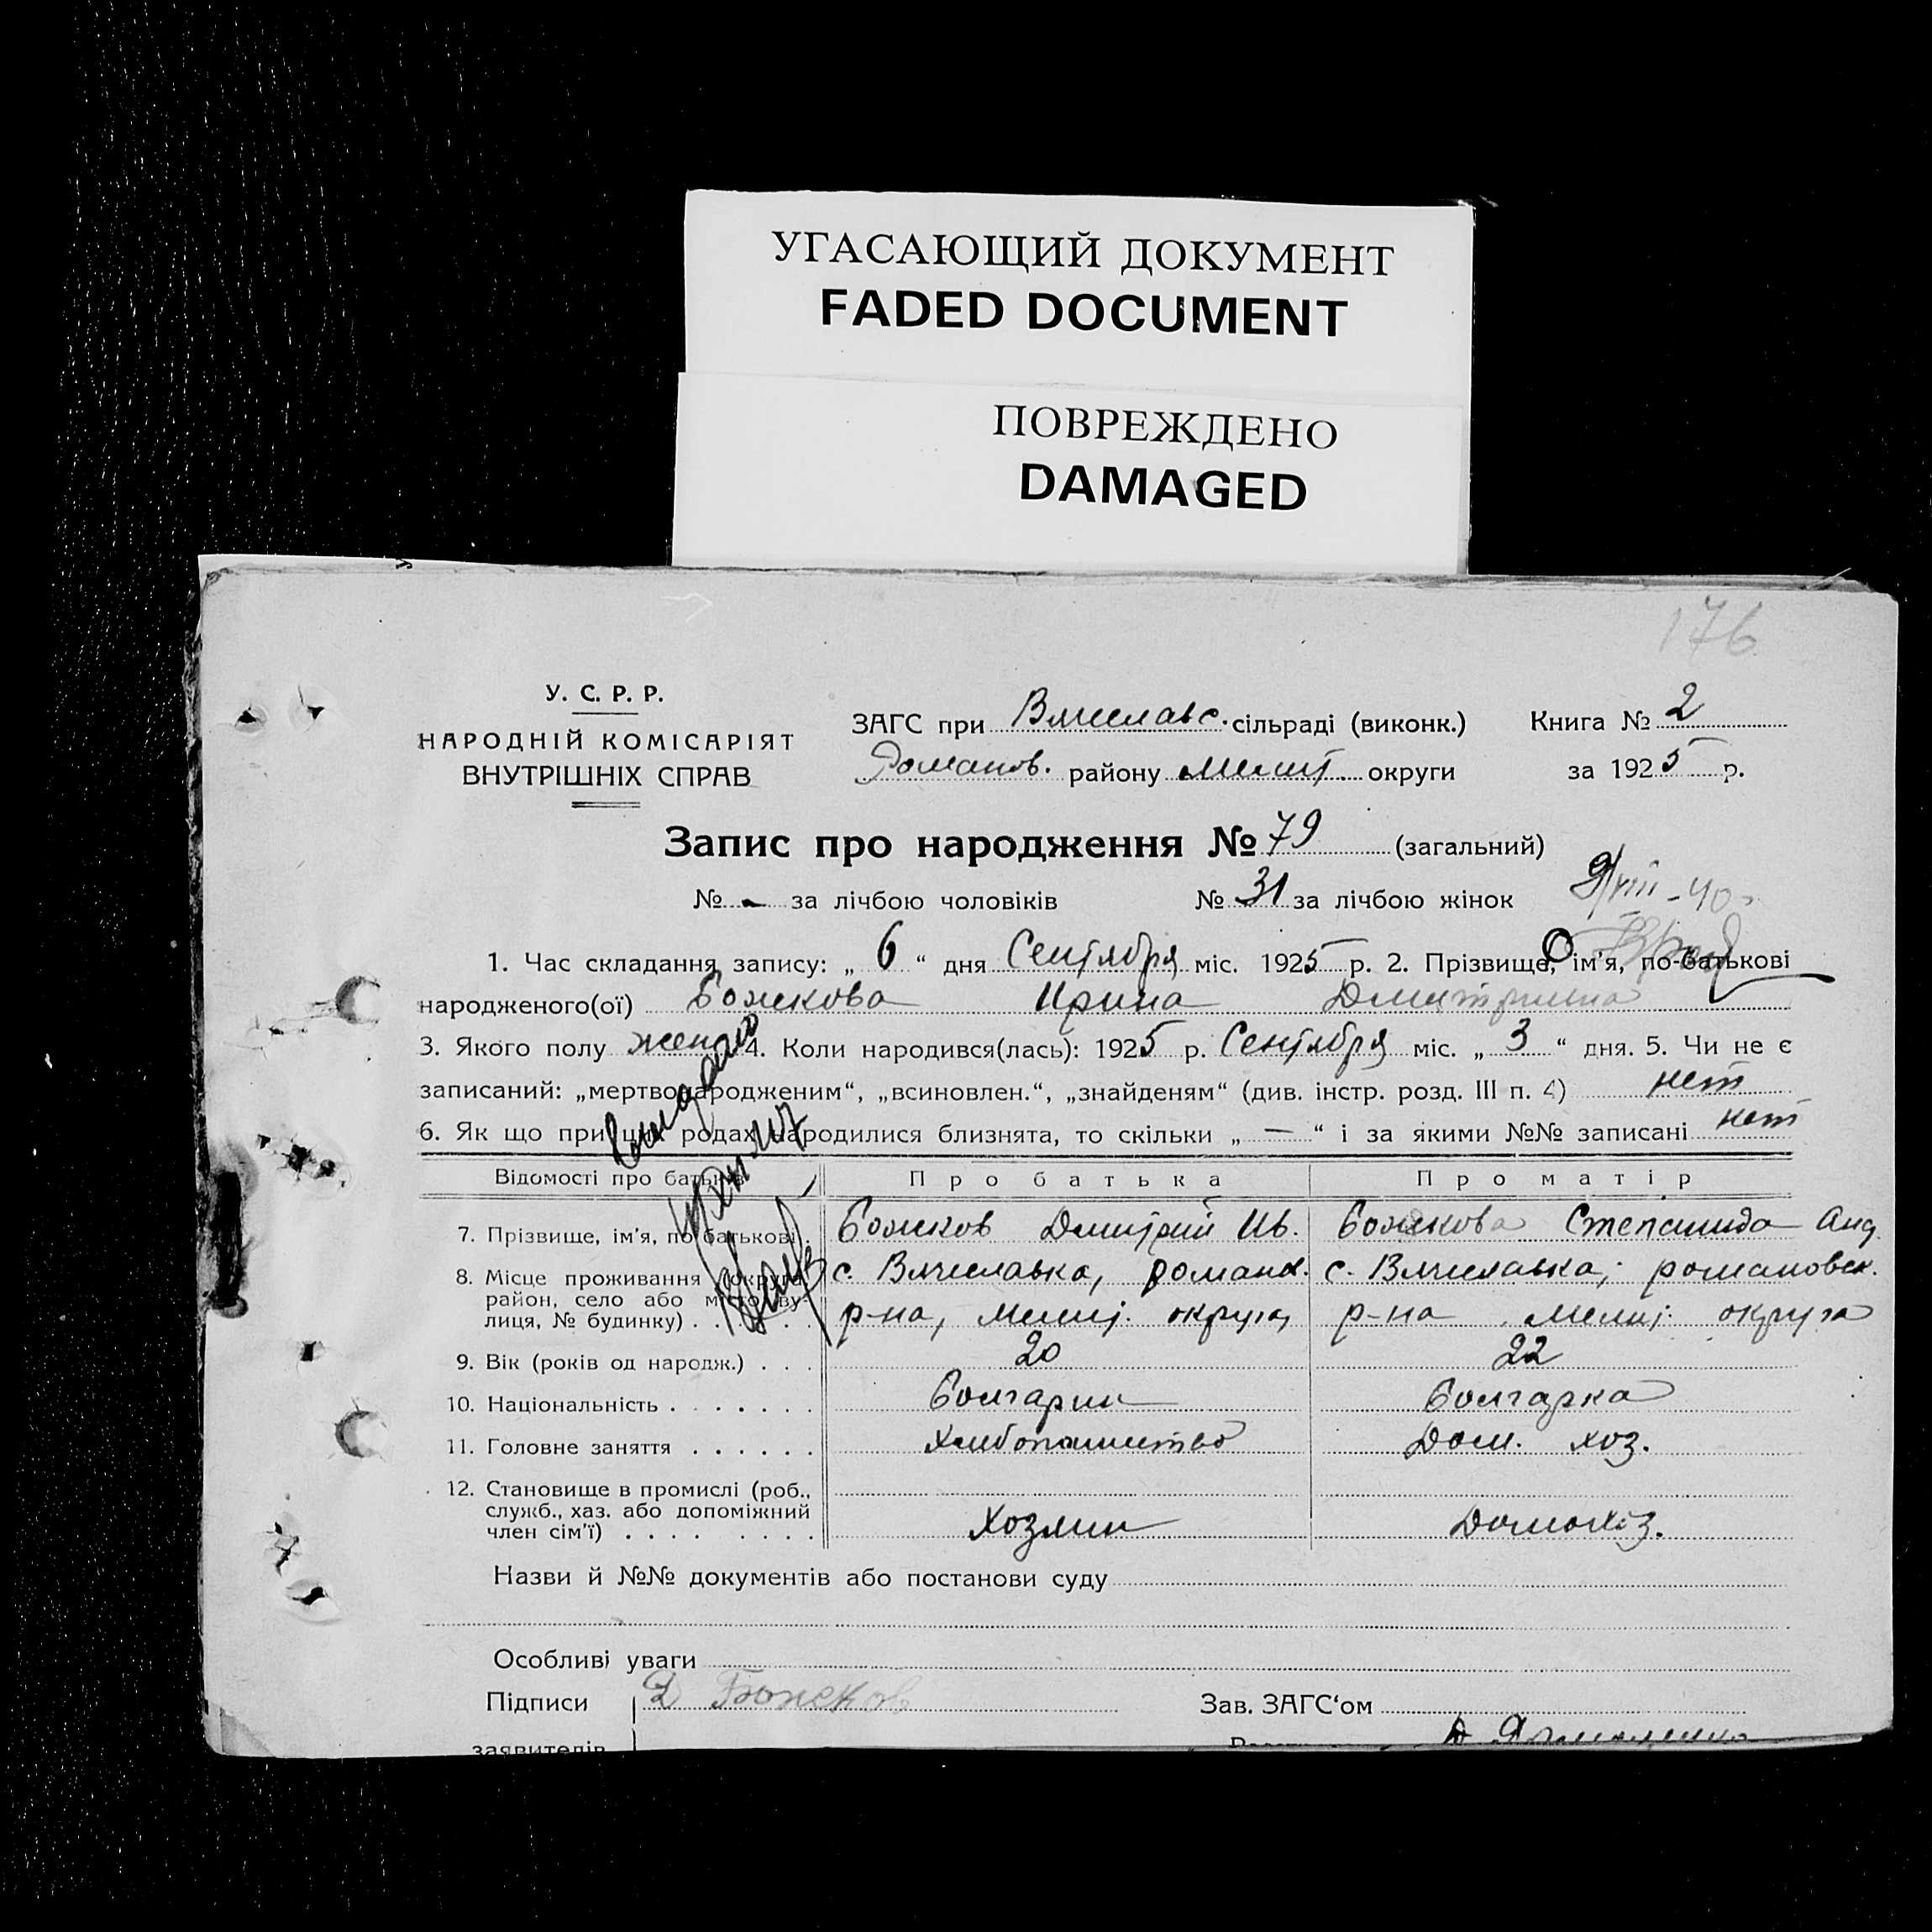 УГАСАЮЩИЙ ДОКУМЕНТ
FADED DOCUMENT
ПОВРЕЖДЕНО
DAMAGED
176
У. С. Р. Р.
НАРОДНІЙ КОМІСАРІЯТ
ВНУТРІШНІХ СПРАВ
ЗАГС при Вячеславс. сільраді (виконк.) Книга № 2
Романов. району Мелит. округи за 1925 р.
Запис про народження № 79 (загальний)
№ - за лічбою чоловіків № 31 за лічбою жінок
9/VIII-40
1. Час складання запису: „ 6 “ дня Сентября міс. 1925 р. 2. Прізвище, ім'я, по-батькові
народженого(ої) Божкова Ирина Дмитриевна
3. Якого полу жен 4. Коли народився(лась): 1925 р. Сентября міс. „ 3 “ дня. 5. Чи не є
записаний: „мертвонародженим“, „всиновлен.“, „знайденям“ (див. інстр. розд. III п. 4) нет
6. Як що при цих родах народилися близнята, то скільки „ — “ і за якими №№ записані нет
Відомості про батьків Про батька Про матір
7. Прізвище, ім'я, по батькові . Божков Дмитрий Ив. Божкова Степанида Анд.
8. Місце проживання (округа, район, село або місто, вулиця, № будинку) . . . с. Вячеславка, роман. с. Вячеславка, романовск.
р-на, Мелит. округа, р-на Мелит. округа
9. Вік (років од народж.) . . . 20 22
10. Національність . . . . . . . Болгарин Болгарка
11. Головне заняття . . . . . . Хлебопашество Дом. хоз.
12. Становище в промислі (роб.,
служб., хаз. або допоміжний
член сім'ї) . . . . . . . . . Хозяин Домохоз.
Назви й №№ документів або постанови суду
Особливі уваги
Підписи Д Божков Зав. ЗАГС‘ом
заявителів